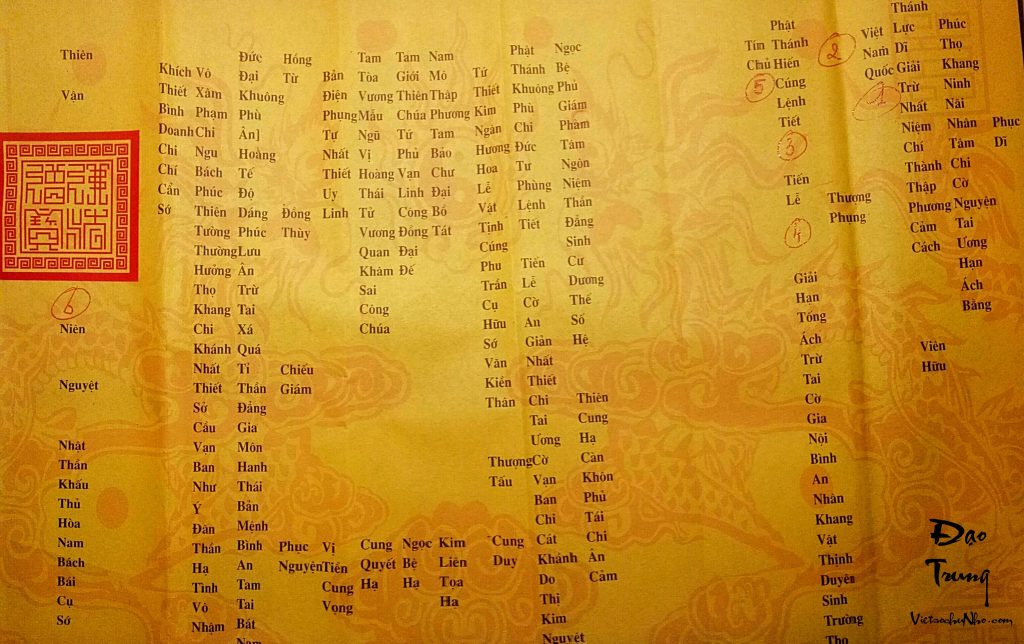 Phục Dĩ
Phúc Thọ Khang Ninh Nãi Nhân Tâm Chi Cờ Nguyện Tai Ương Hạn Ách Bằng
Thánh Lực Dĩ Giải Trừ Nhất Niệm Chí Thành Thập Phương Cảm Cách Viên Hữu
1
Việt Nam Quốc
2
Thượng Phụng
Phật Thánh Hiến Cúng Lệnh Tiết 3 Tiến Lễ 4 Giải Hạn Tống Ách Trừ Tai Cờ Gia Nội Bình An Nhân Khang Vật Thịnh Duyên Sinh Trường Thọ
Tín Chủ 5
Ngọc Bệ Phủ Giám Phàm Tâm Ngôn Niệm Thần Đẳng Sinh Cư Dương Thế Số Hệ Thiên Cung Hạ Càn Khôn Phủ Tái Chi Ân Cảm
Phật Thánh Khuông Phù Chi Đức Tư Phùng Lệnh Tiết Tiến Lễ Cờ An Giản Nhất Thiết Chi Tai Ương Cờ Vạn Ban Chi Cát Khánh Do Thị Kim Nguyệt
Tứ Thiết Kim Ngân Hương Hoa Lễ Vật Tịnh Cúng Phu Trần Cụ Hữu Sớ Văn Kiền Thân Thượng Tấu Cung Duy
Nam Mô Thập Phương Tam Bảo Chư Đại Bồ Tát Kim Liên Tọa Hạ
Tam Giới Thiên Chúa Tứ Phủ Vạn Linh Công Đồng Đại Đế Ngọc Bệ Hạ
Tam Tòa Vương Mẫu Ngũ Vị Hoàng Thái Tử Vương Quan Khâm Sai Công Chúa Cung Quyết Hạ
Bản Điện Phụng Tự Nhất Thiết Uy Linh Vị Tiền Cung Vọng
Hồng Từ Đồng Thùy Chiếu Giám Phục Nguyện
Đức Đại Khuông Phù Ân] Hoằng Tế Độ Dáng Phúc Lưu Ân Trừ Tai Xá Quá Tỉ Thần Đẳng Gia Môn Hanh Thái Bản Mệnh Bình An Tam Tai Bát
Vô Xâm Phạm Chi Ngu Bách Phúc Thiên Tường Thường Hưởng Thọ Khang Chi Khánh Nhất Thiết Sở Cầu Vạn Ban Như Ý Đàn Thần Hạ Tình Vô Nhậm
Khích Thiết Bình Doanh Chi Chí Cẩn Sớ
Thiên Vận 6 Niên Nguyệt Nhật Thần Khấu Thủ Hòa Nam Bách Bái Cụ Sớ
Đạo
Trung